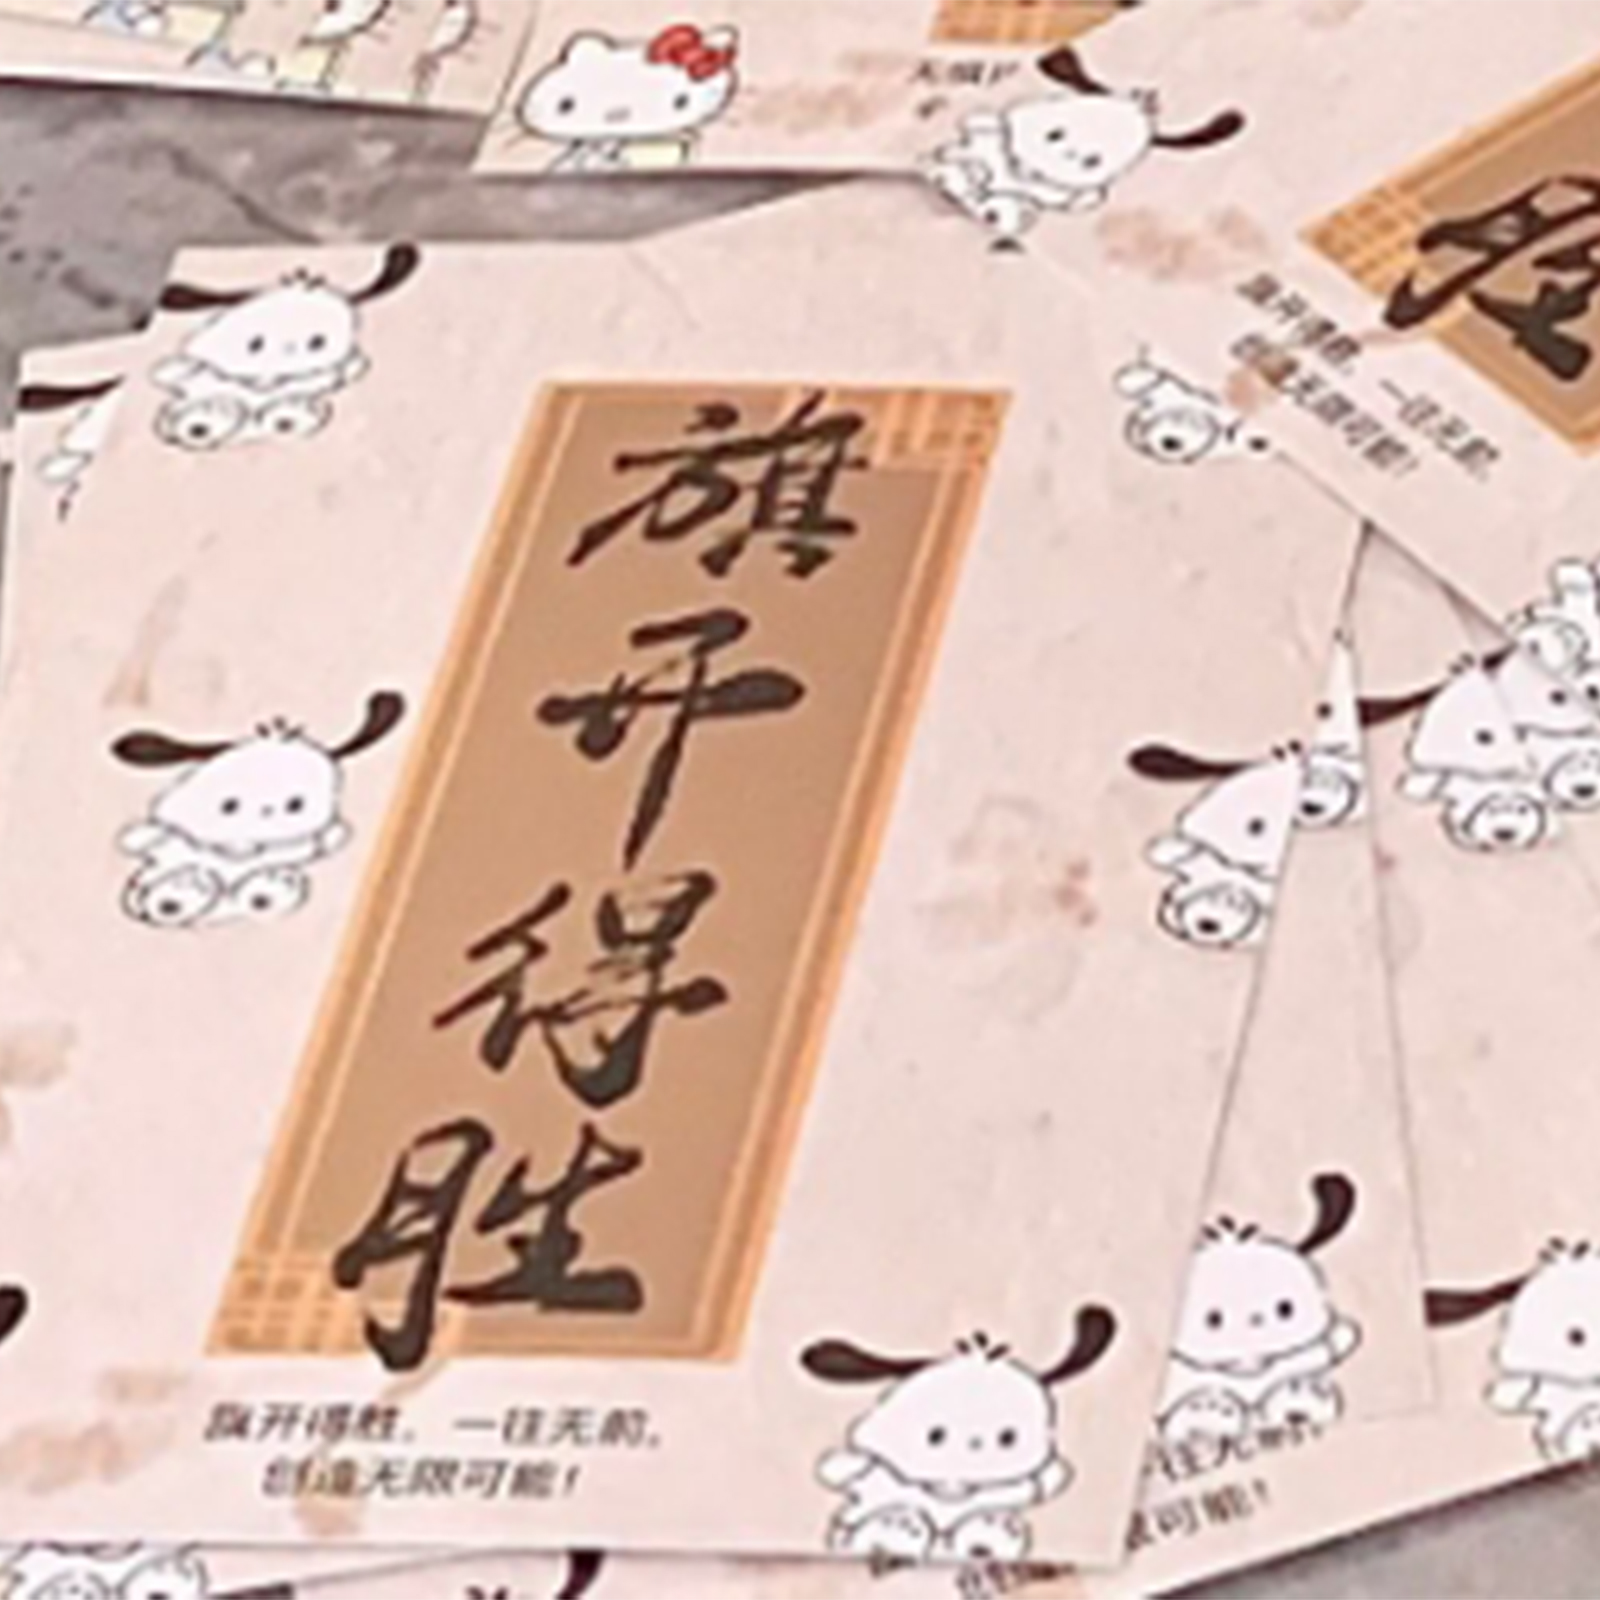 旗开得胜
旗开得胜，一往无前，
创造无限可能！
胜
旗开得胜，一往无前，
创造无限可能！
一往无前，
限可能！